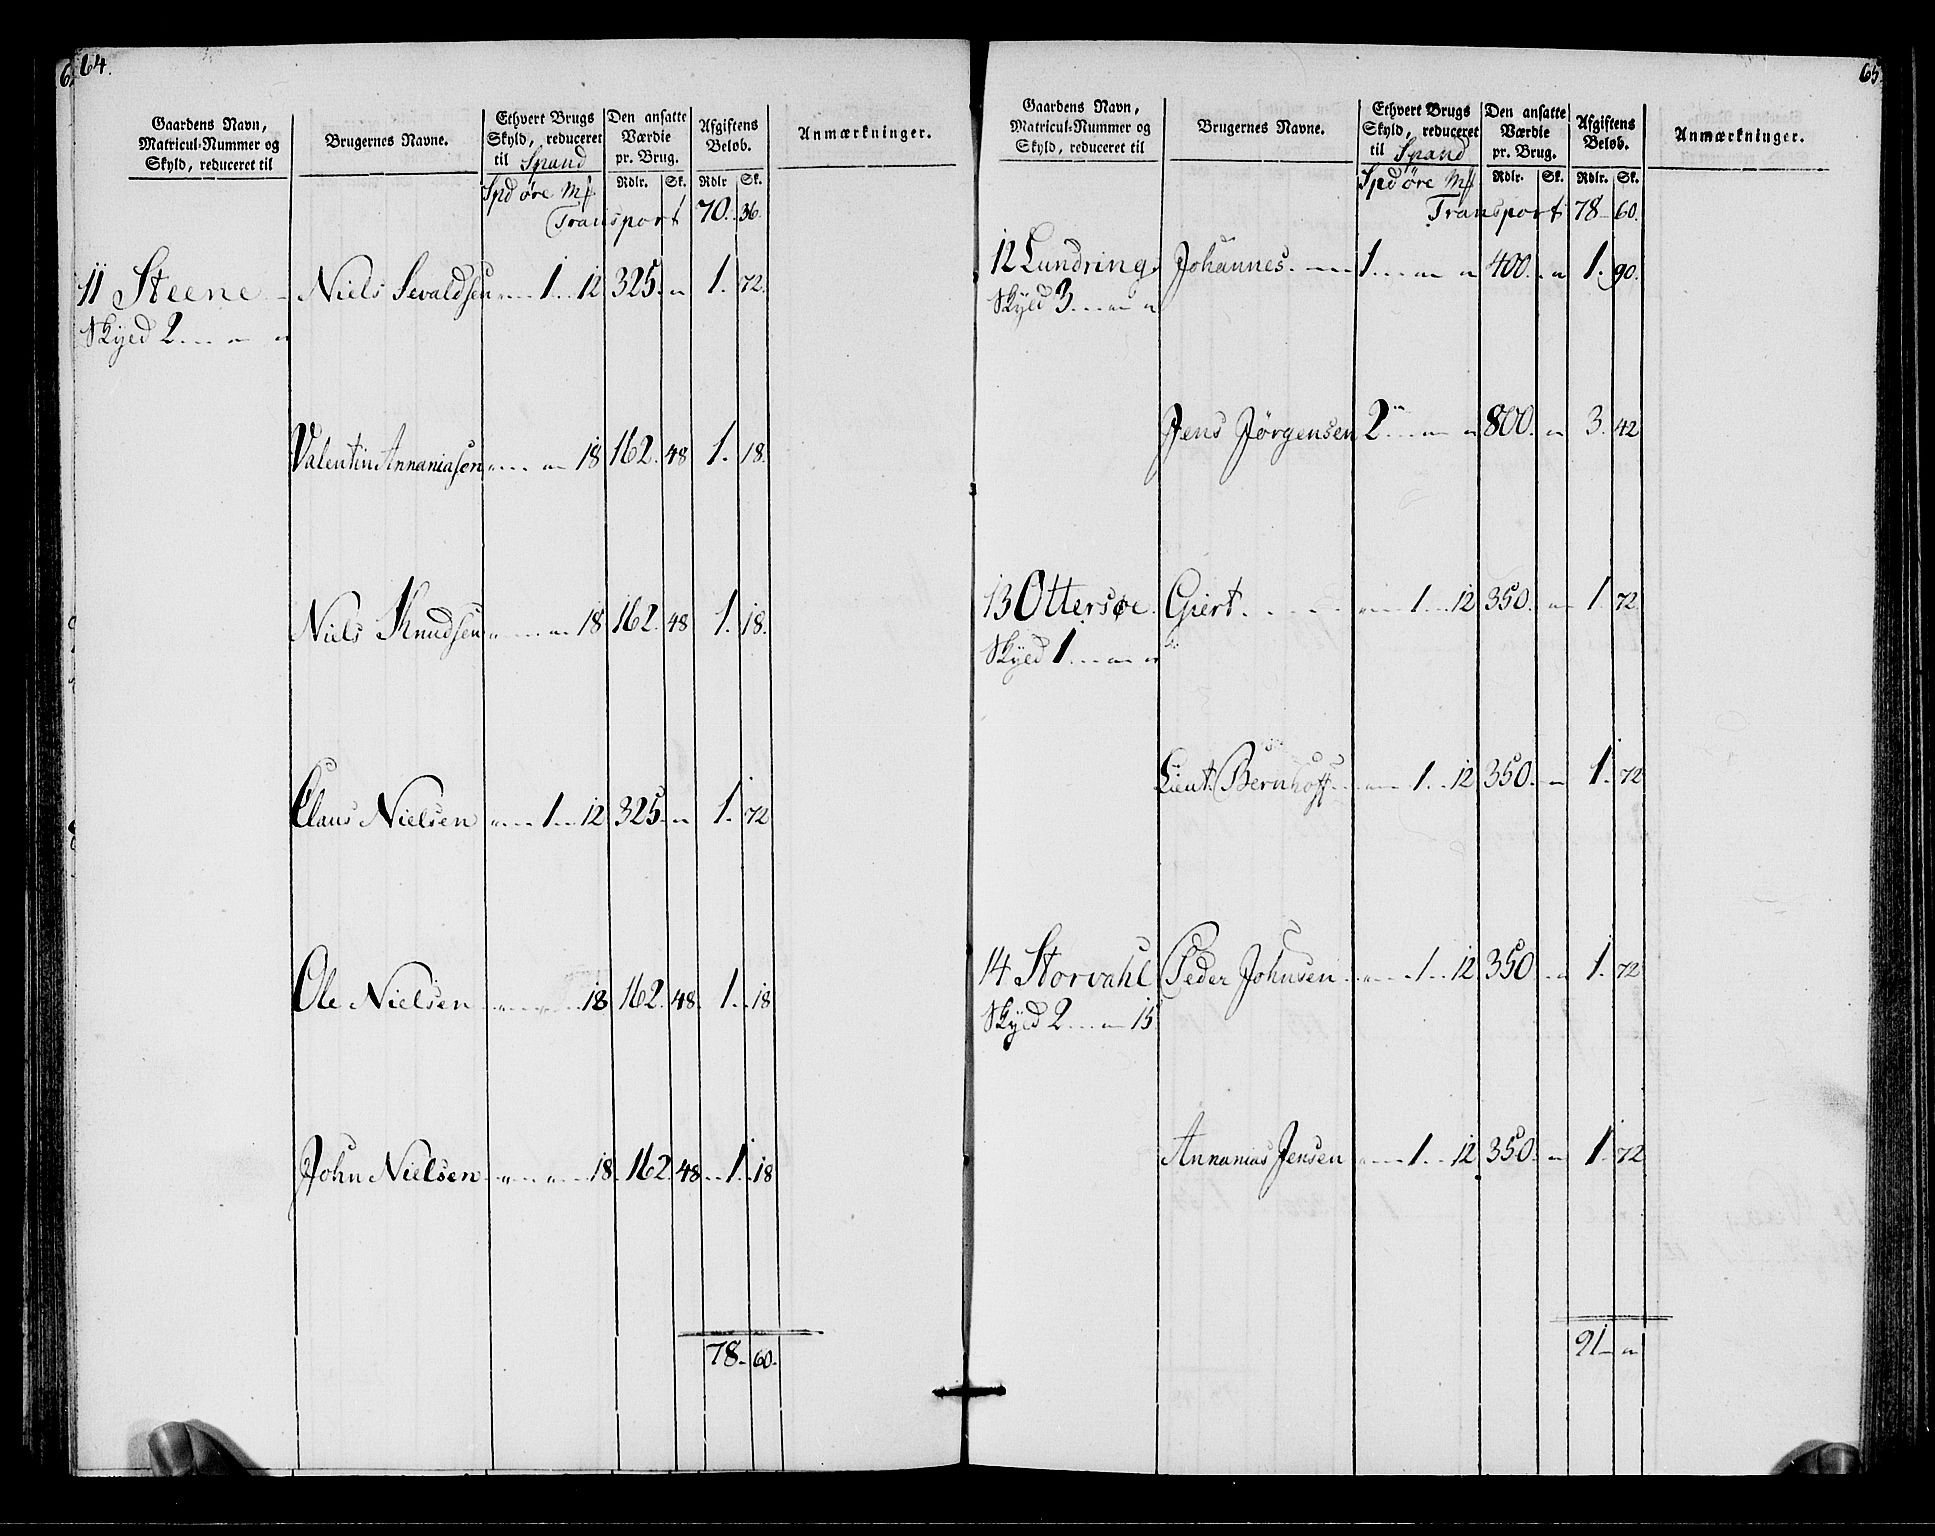 64.
Gaardens Navn, Matricul-Nummer og Skyld, reduceret til
Brugernes Navne.
Ethvert Brugs Skyld, reduceret til Spand
Den ansatte Værdie pr. Brug.
Afgiftens Beløb.
Anmærkninger.
Spd øre Mſ Rdlr. Sk. Rdlr Sk.
Transport 70. 36.
11 Steene Niels Sevaldsen " 1 12 325 " 1. 72.
Skyld 2 " "
Valentin Annaniasen " " 18 162. 48 1. 18.
Niels Knudsen " " 18 162. 48 1. 18.
Claus Nielsen " 1 12 325 " 1. 72
Ole Nielsen " " 18 162. 48. 1. 18
John Nielsen " " 18 162. 48 1. 18
78 60
65
Gaardens Navn, Matricul-Nummer og Skyld, reduceret til
Brugernes Navne.
Ethvert Brugs Skyld, reduceret til Spand
Den ansatte Værdie pr. Brug.
Afgiftens Beløb.
Anmærkninger.
Spd øre Mſ Rdlr. Sk. Rdlr. Sk.
Transport 78 60.
12 Lundring Johannes 1 " " 400. " 1. 90.
Skyld 3 " "
Jens Jørgensen 2 " " 800. " 3. 42
13 Ottersøe Giert " 1 12 350. " 1. 72
Skyld 1 " "
Lieut. Bernhoff " 1 12 350. " 1. 72
14 Storvahl Peder Johnsen " 1 12 350 " 1. 72
Skyld 2 " 15
Annanias Jensen " 1 12 350. " 1 72
91 "